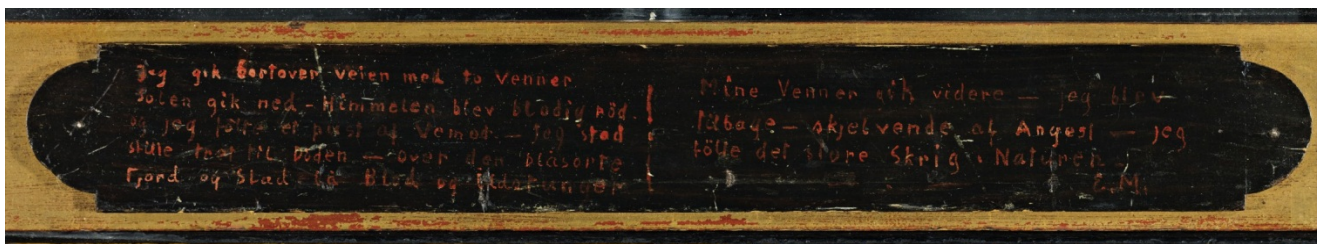 Jeg gik bortover veien med to Venner
Solen gik ned – Himmelen blev blodig röd.
og jeg følte et pust af Vemod – Jeg stod
stille træt til Døden – over den blåsorte
Fjord og Stad lå Blod og Ildstunger
Mine Venner gik videre – jeg blev
tilbage – skjelvende af Angest – jeg
fölte det store Skrig i Naturen
E.M.